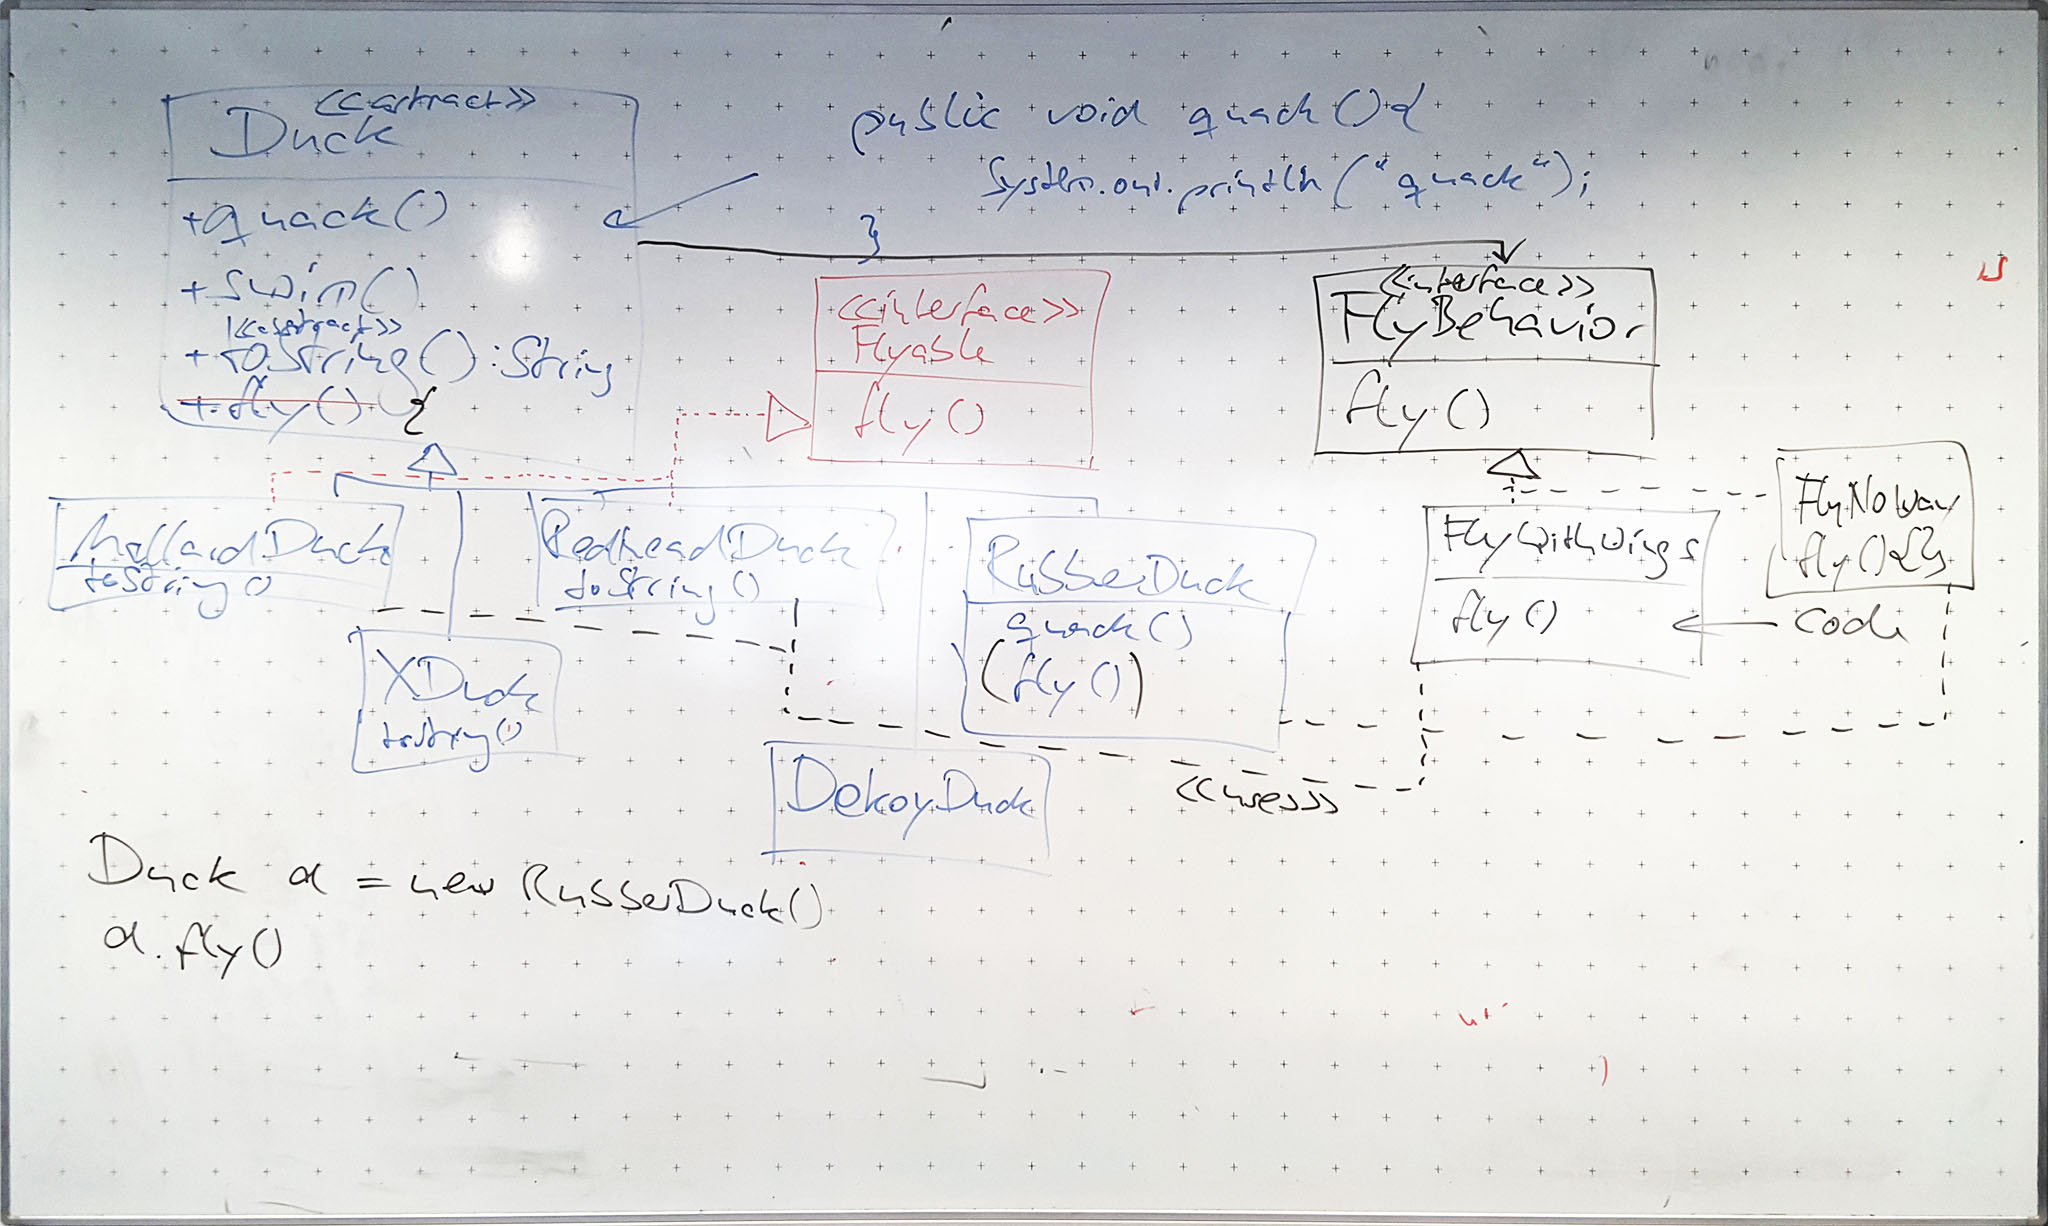 <<abstract>>
Duck
+quack()
+swim()
<<abstract>>
+toString():String
+fly() {
public void quack(){
System.out.println("quack");
}
<<interface>>
Flyable
fly()
<<interface>>
FlyBehavior
fly()
MallardDuck
toString()
RedheadDuck
toString()
RubberDuck
quack()
(fly())
FlyWithWings
fly()
FlyNoWay
fly(){}
code
XDuck
toString()
DekoyDuck
<<uses>>
Duck d = new RubberDuck()
d.fly()